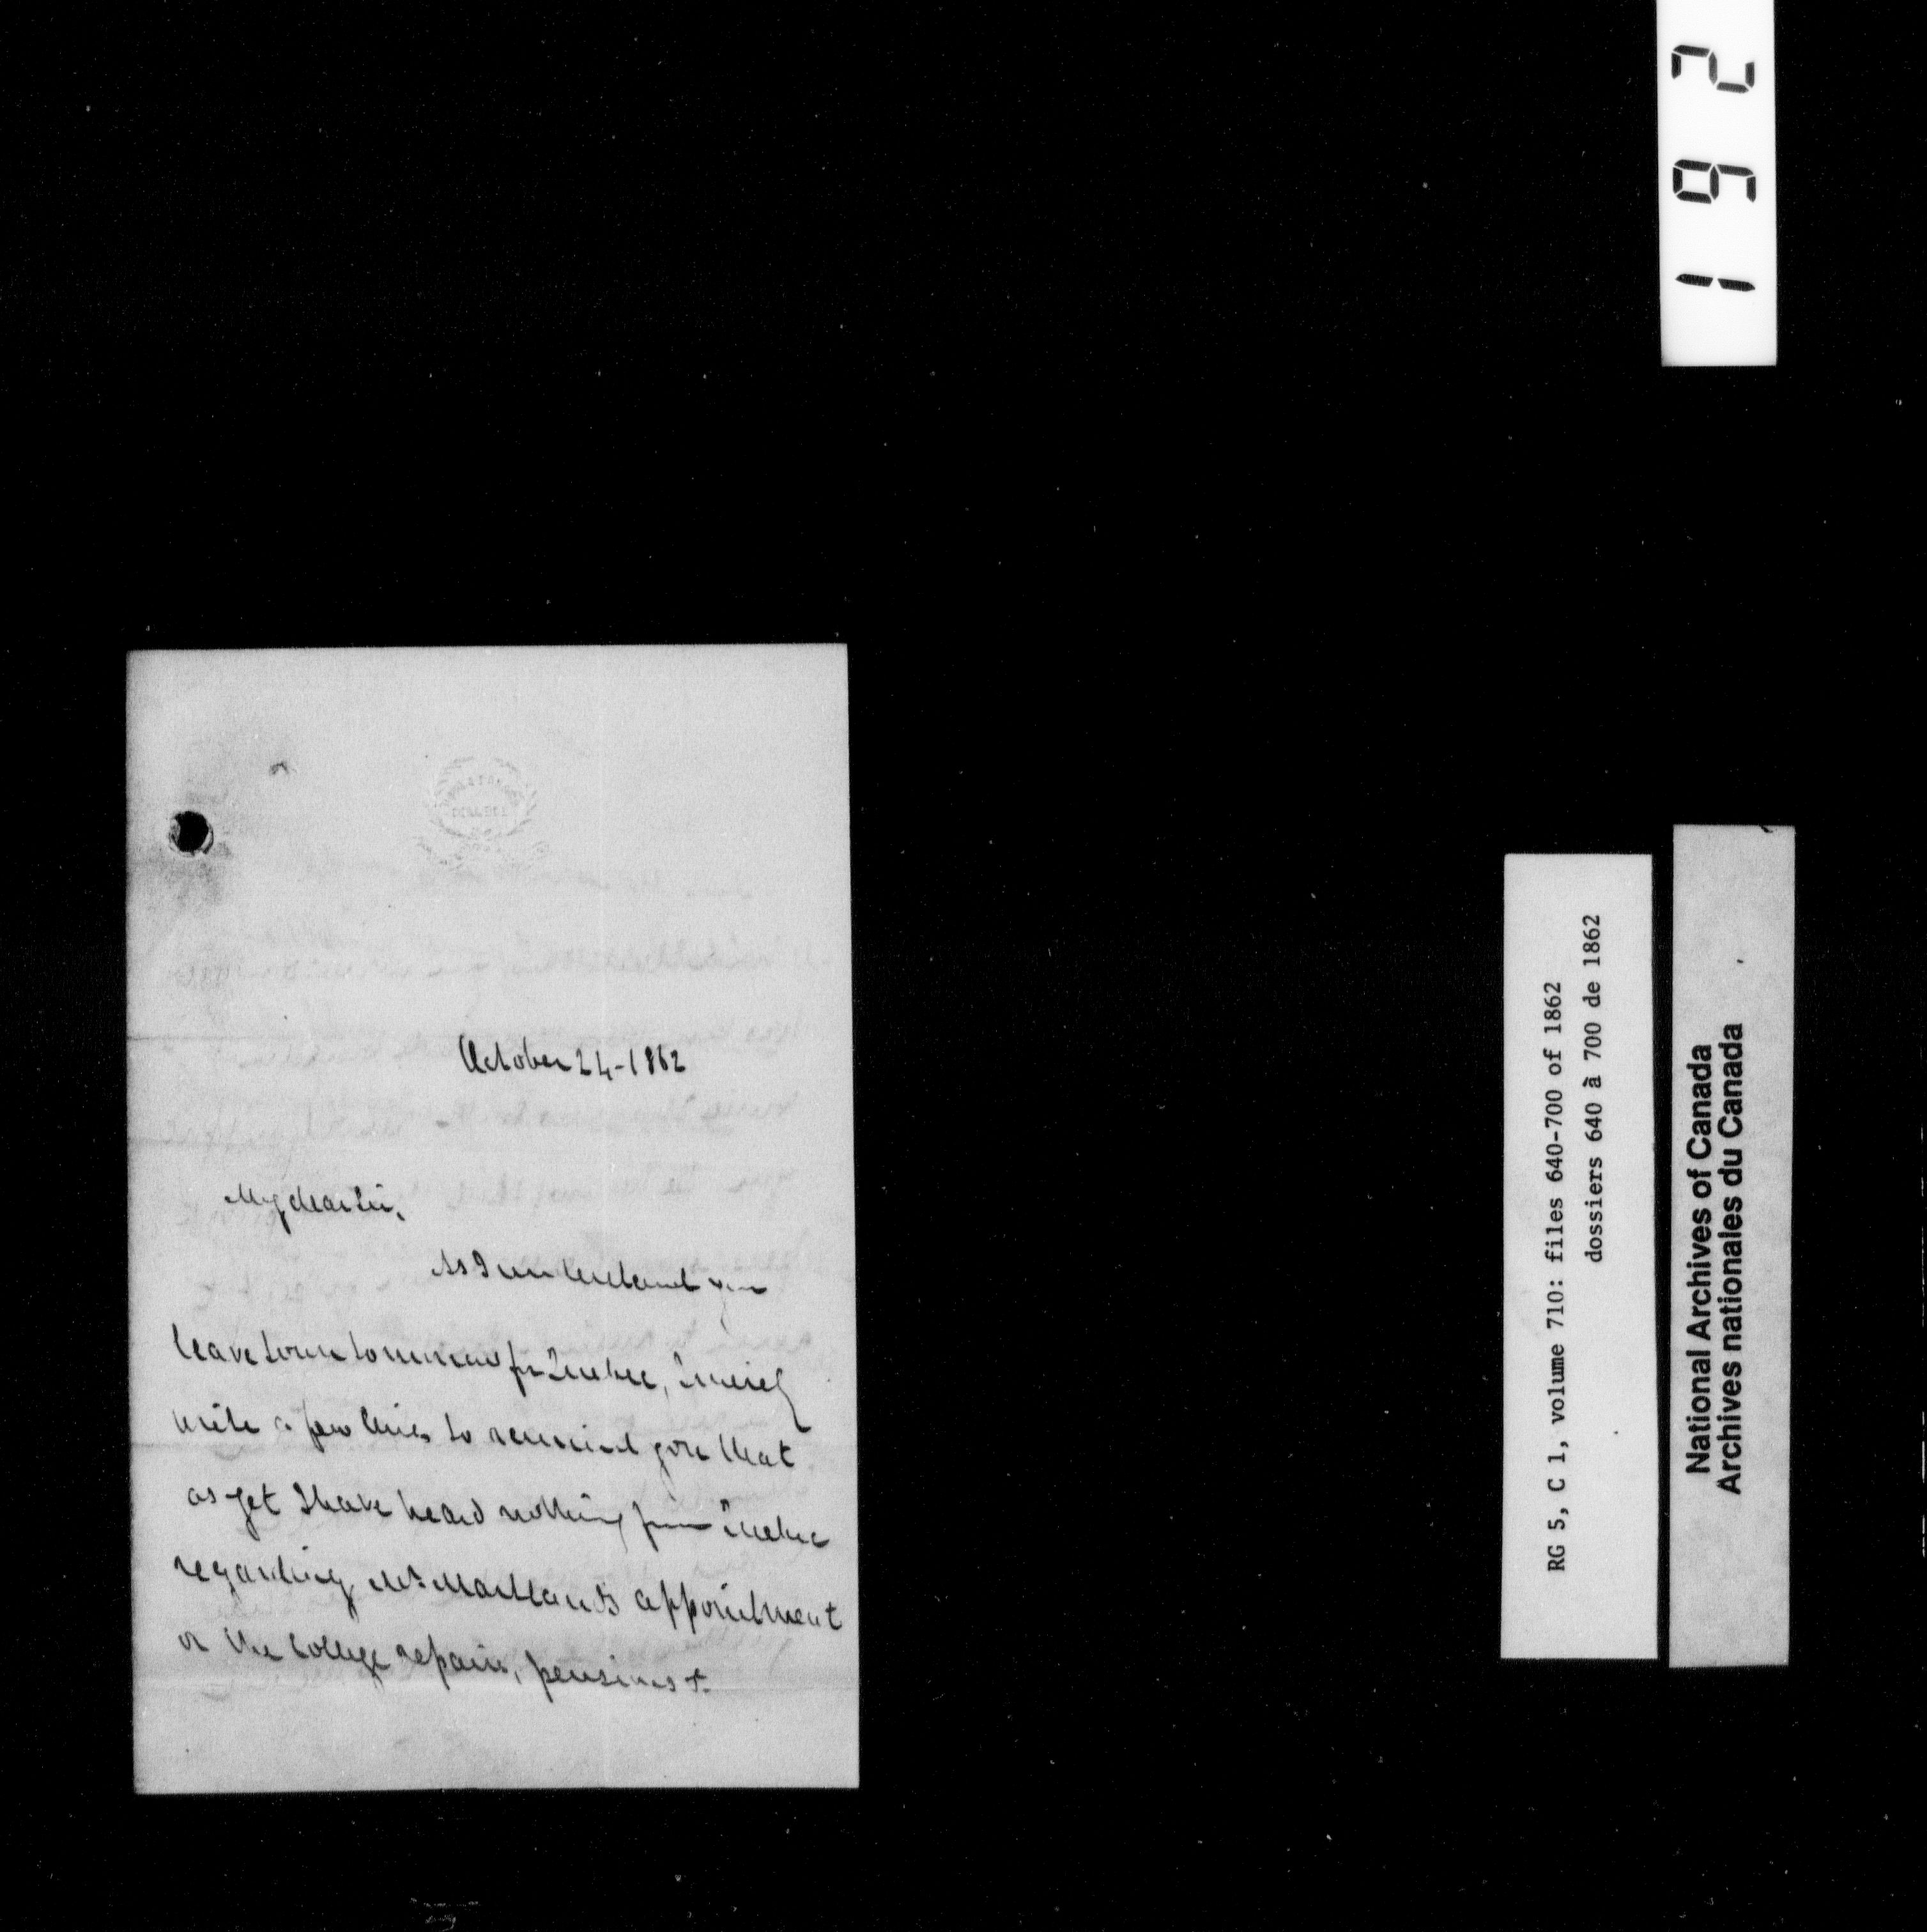 October 24-1862
My dear Sir,
As I understand you
leave town tomorrow for Quebec, I merely
write a few lines to remind you that
as yet I have heard nothing from Quebec
regarding Mr Maitland's appointment
or the College repairs, pensions &c.
192
RG 5, C 1, volume 710: files 640-700 of 1862
dossiers 640 à 700 de 1862
National Archives of Canada
Archives nationales du Canada
COLLEGE